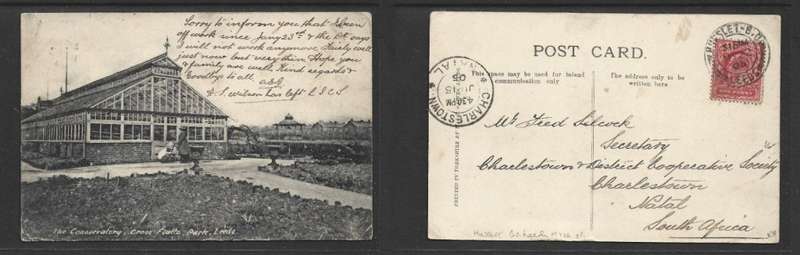 Sorry to inform you that I been
off work since Jany 23rd & the Dr. says
I will not work anymore. Fairly well
just now but very thin Hope you
& family are well. Kind regards &
Goodbye to all
J. Wilson has left L & C S
The Conservatory, Cross Flatts Park, Leeds
POST CARD.
This space may be used for inland
communication only
The address only to be
written here
CHARLESTOWN
NATAL
4.30PM
JU 15
HUNSLET-B.O
LEEDS
PRINTED IN
Mr Fred Silcock
Secretary
Charlestown & District Cooperative Society
Charlestown
Natal
South Africa